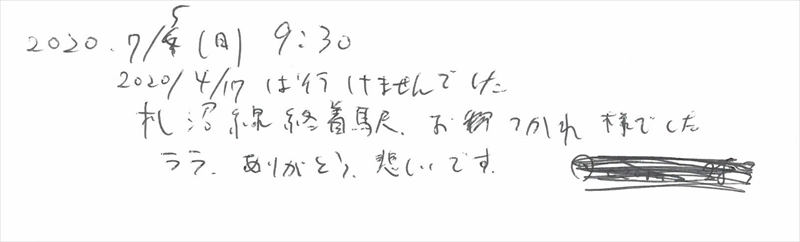 2020.7/5(日) 9:30
2020/4/17は行けませんでした
札沼線終着駅、お疲れつかれ様でした
ララ、ありがとう、悲しいです。